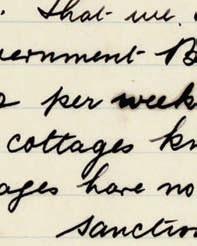 . that we.
vernment B
per week
cottages kn
ages have no
sanction